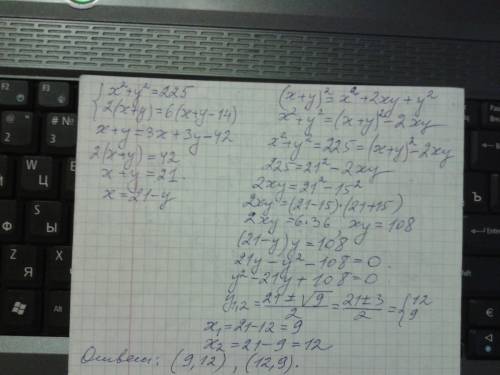 {x²+y²=225
{2(x+y)=6(x+y-14)
x+y=3x+3y-42
2(x+y)=42
x+y=21.
x=21-y
(x+y)²=x²+2xy+y²
x²+y²=(x+y)²-2xy
x²+y²=225=(x+y)²-2xy
225=21²-2xy
2xy=21²-15²
2xy=(21-15)·(21+15)
2xy=6·36, xy=108
(21-y)y=108
21y-y²-108=0.
y²-21y+108=0
y₁,₂=(21±√9)/2=(21±3)/2={12
9
x₁=21-12=9
x₂=21-9=12
Ответ: (9,12), (12,9).
F2
2
№
3
Ц
Я
Ы
Alt
Ъ
Enter